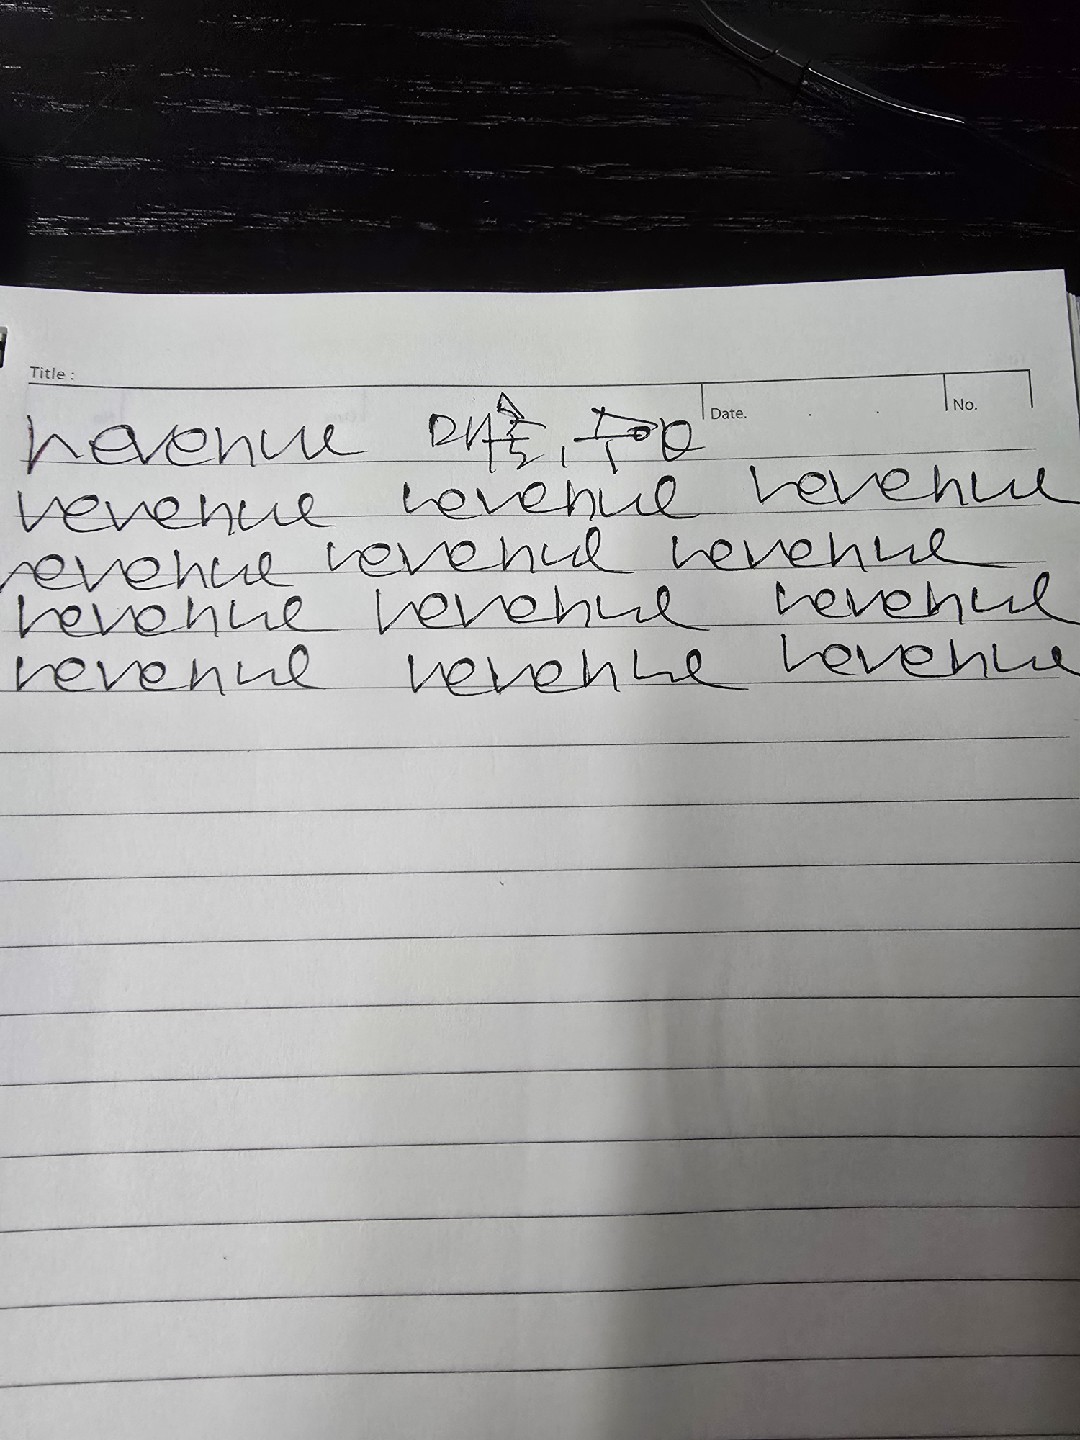 Title :
Date. No.
revenue 매출,
revenue revenue revenue
revenue revenue revenue
revenue revenue revenue
revenue revenue revenue